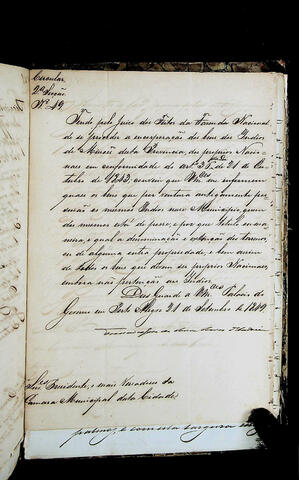 Circular
2ª Secção
Nº 49.
Tendo pelo Juizo dos Feitos da Fazenda Nacional
de se proceder a encorporação dos bens dos Indios
de Missões desta Provincia, aos proprios Nacio-
naes em conformidade do artº 35 de 21 de Ou-
tubro de 1843, convem que Vmces me informem
quaes os bens que por ventura antigamente per-
tencião os mesmos Indios nesse Municipio, quem
dos mesmos está de posse, e por que titulo ou ma-
neira, qual a denominação e extenção dos terrenos
ou de alguma outra propriedade, e bem assim
de todos os bens que devem ser proprios Nacionaes
embora não pertenção aos Indios.
Deus Guarde a Vmces Palacio do
Governo em Porto Alegre 21 de Setembro de 1849
Snres Presidente, e mais Vereadores da
Camara Municipal desta Cidade.